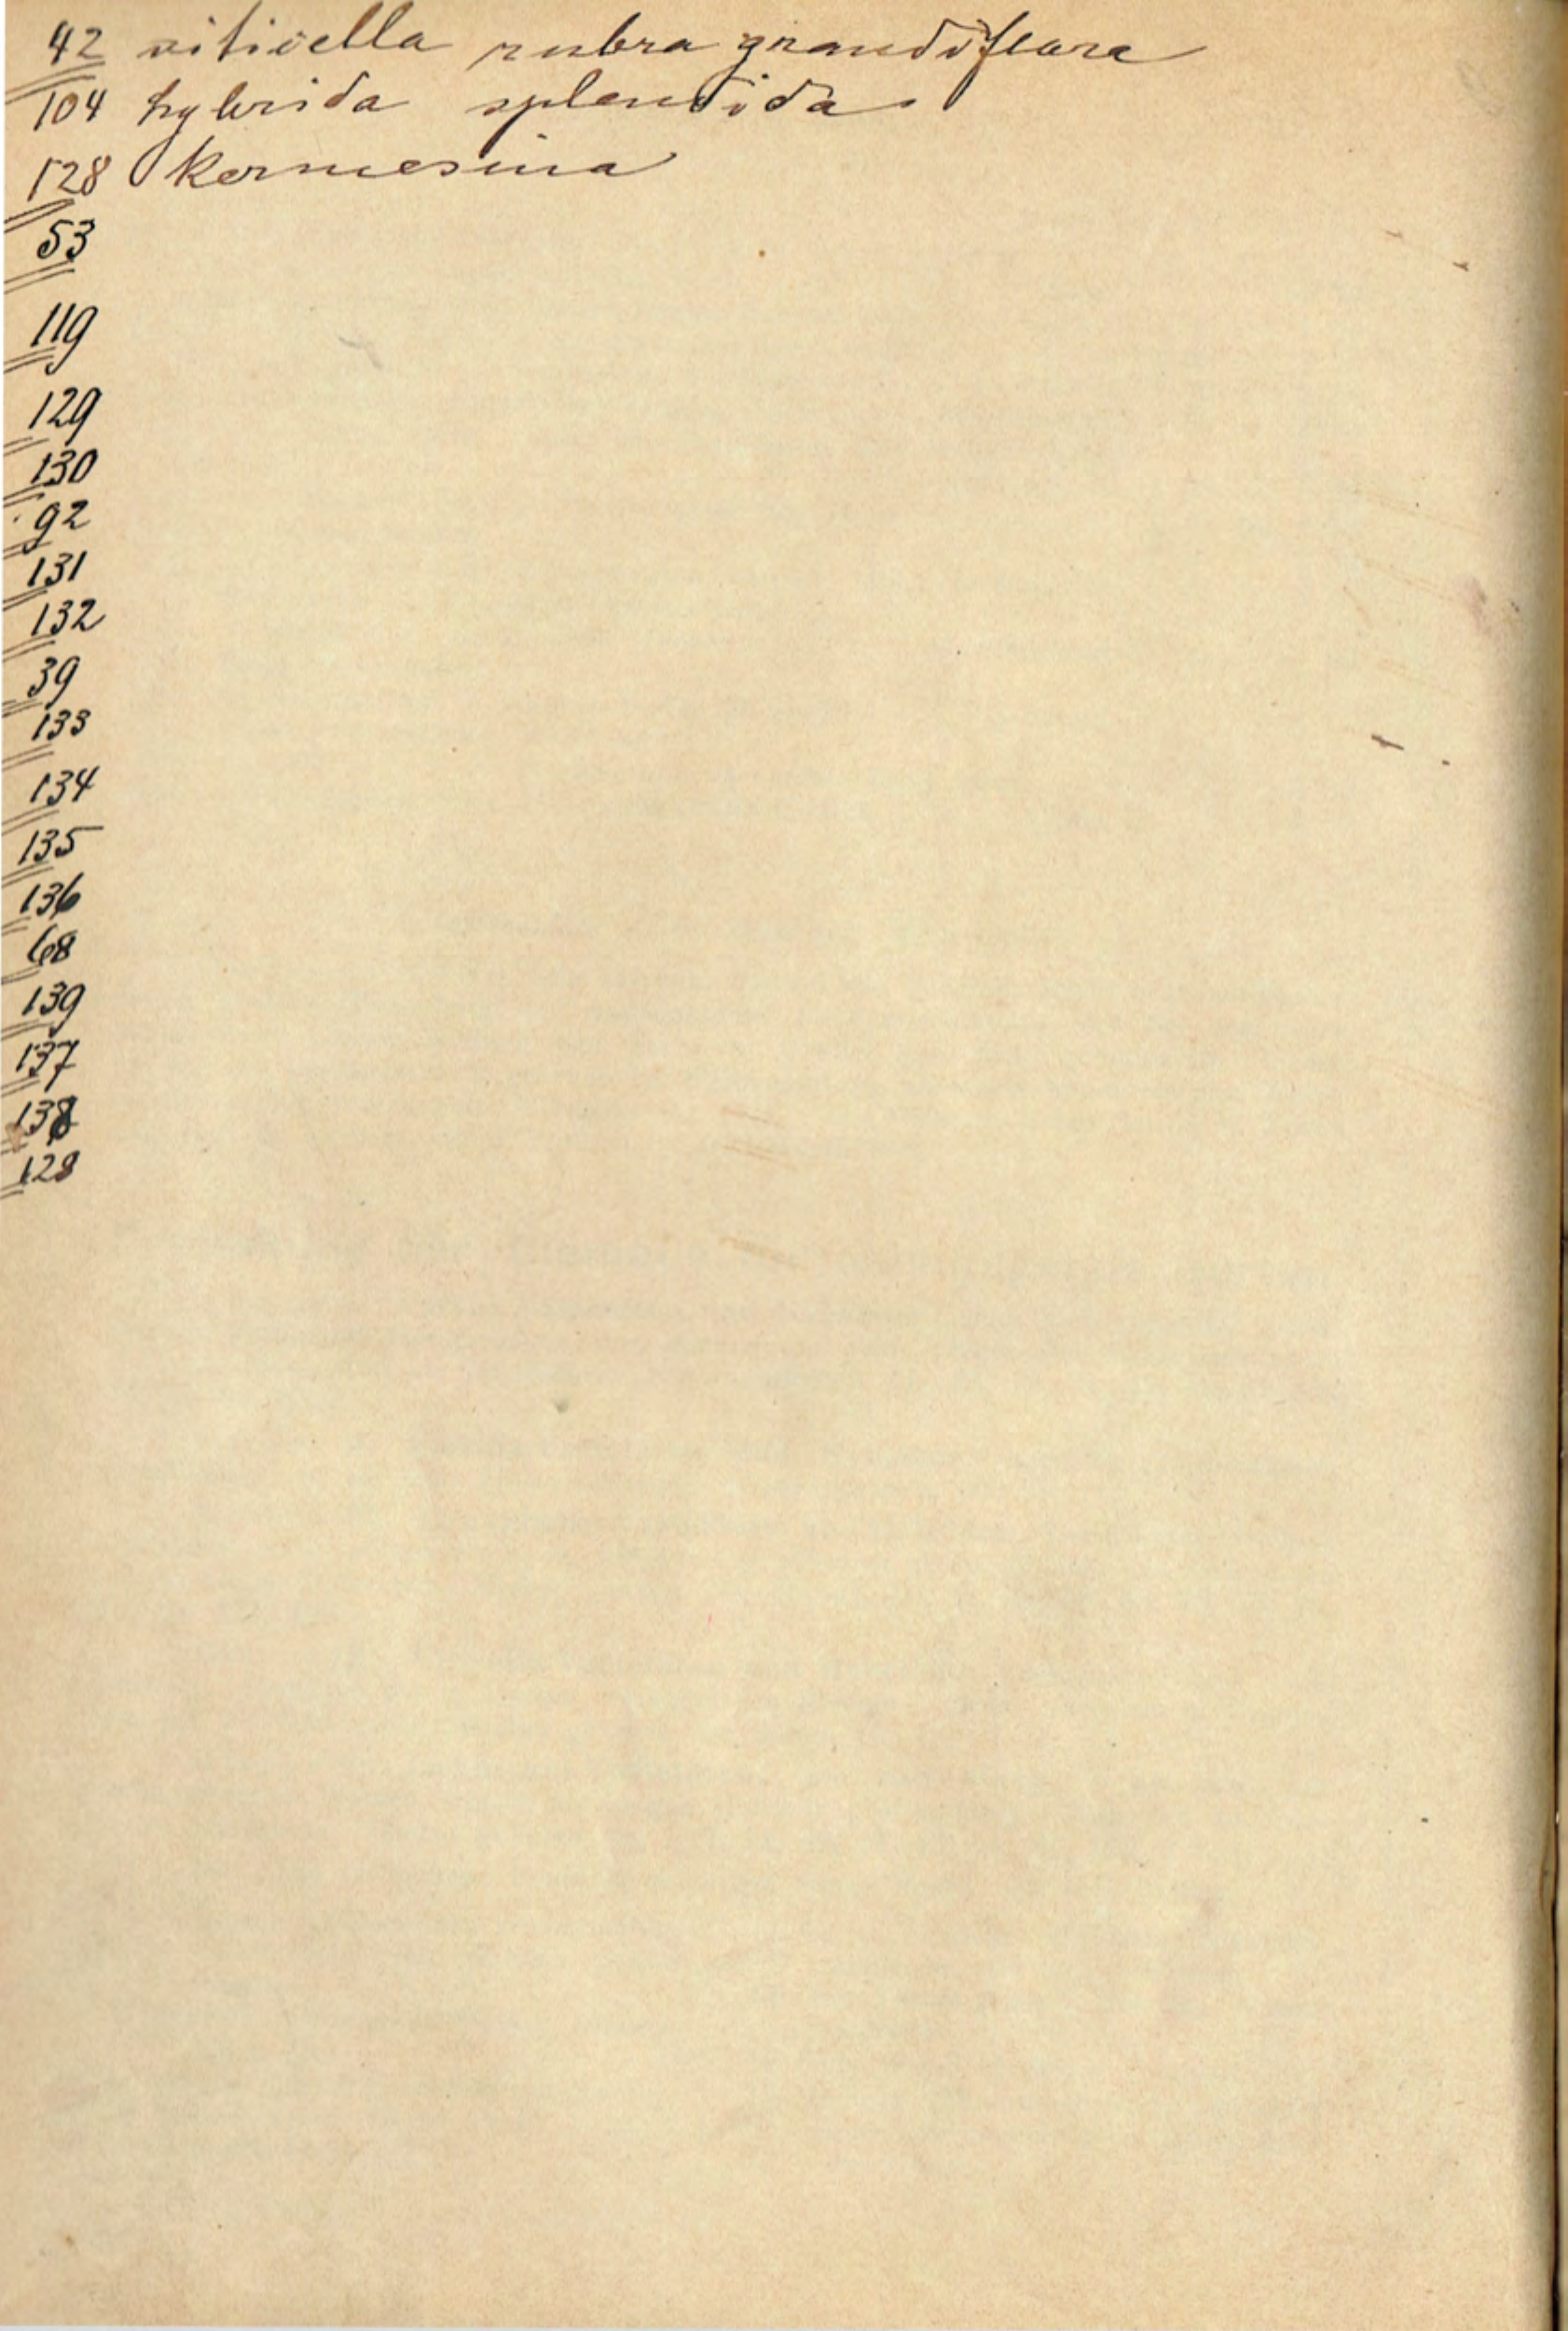 42 viticella rubra grandiflora
104 hybrida splendida
128 kermesina
53
119
129
130
92
131
132
39
133
134
135
136
68
139
137
138
128